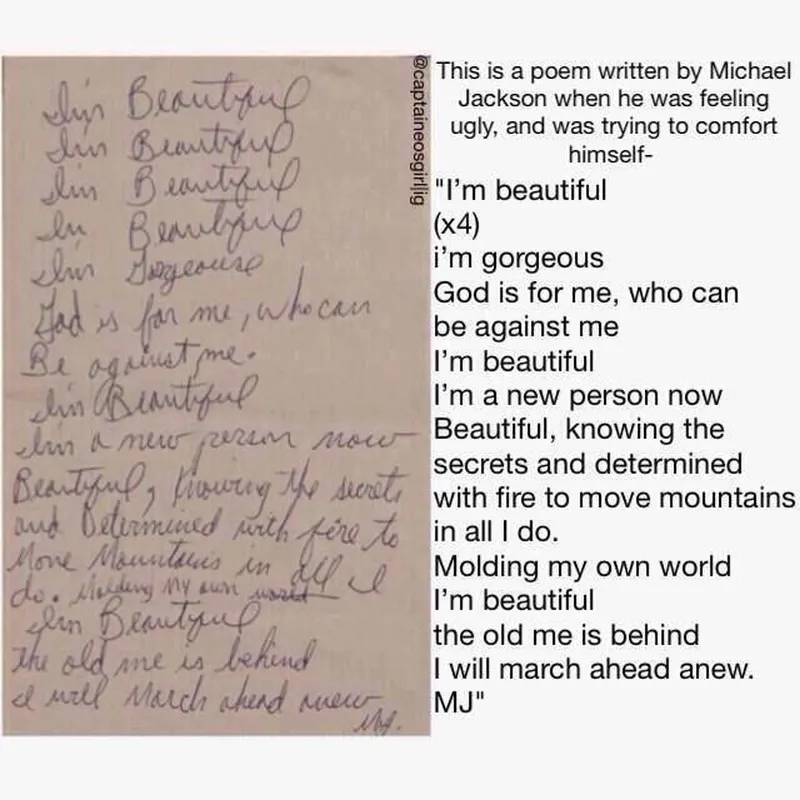 I'm Beautiful
I'm Beautiful
I'm Beautiful
I'm Beautiful
I'm Gorgeouse
God is for me, who can
Be against me.
I'm Beautiful
I'm a new person now
Beautiful, knowing the secrets
and Determined with fire to
Move Mountains in all I
do. Molding My own world
I'm Beautiful
the old me is behind
I will March ahead anew
MJ.
@captaineosgirl|ig
This is a poem written by Michael
Jackson when he was feeling
ugly, and was trying to comfort
himself-
"I'm beautiful
(x4)
i'm gorgeous
God is for me, who can
be against me
I'm beautiful
I'm a new person now
Beautiful, knowing the
secrets and determined
with fire to move mountains
in all I do.
Molding my own world
I'm beautiful
the old me is behind
I will march ahead anew.
MJ"